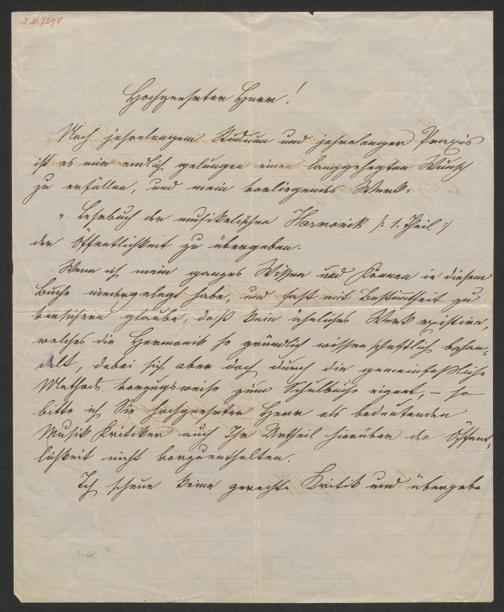 I.N. 7698
Hochgeehrter Herr!
Nach jahrelangem Studium und jahrelanger Praxis
ist es mir endlich gelungen einen langgehegten Wunsch
zu erfüllen, und mein vorliegendes Werk.
„Lehrbuch der musikalischen Harmonik /: 1. Theil :/
der Öffentlichkeit zu übergeben.
Wenn ich mein ganzes Wissen und Können in diesem
Buche niedergelegt habe, und fast mit Bestimtheit zu
versichern glaube, daß kein ähnliches Werk existire,
welches die Harmonik so gründlich wissenschaftlich behan-
delt, dabei sich aber doch durch die gemeinfaßliche
Methode vorzugsweise zum Schulbuche eignet, – so
bitte ich Sie hochgeehrter Herr als bedeutenden
Musik Kritiker auch Ihr Urtheil hierüber der Öffent-
lichkeit nicht vorzuenthalten.
Ich scheue keine gerechte Kritik und übergebe